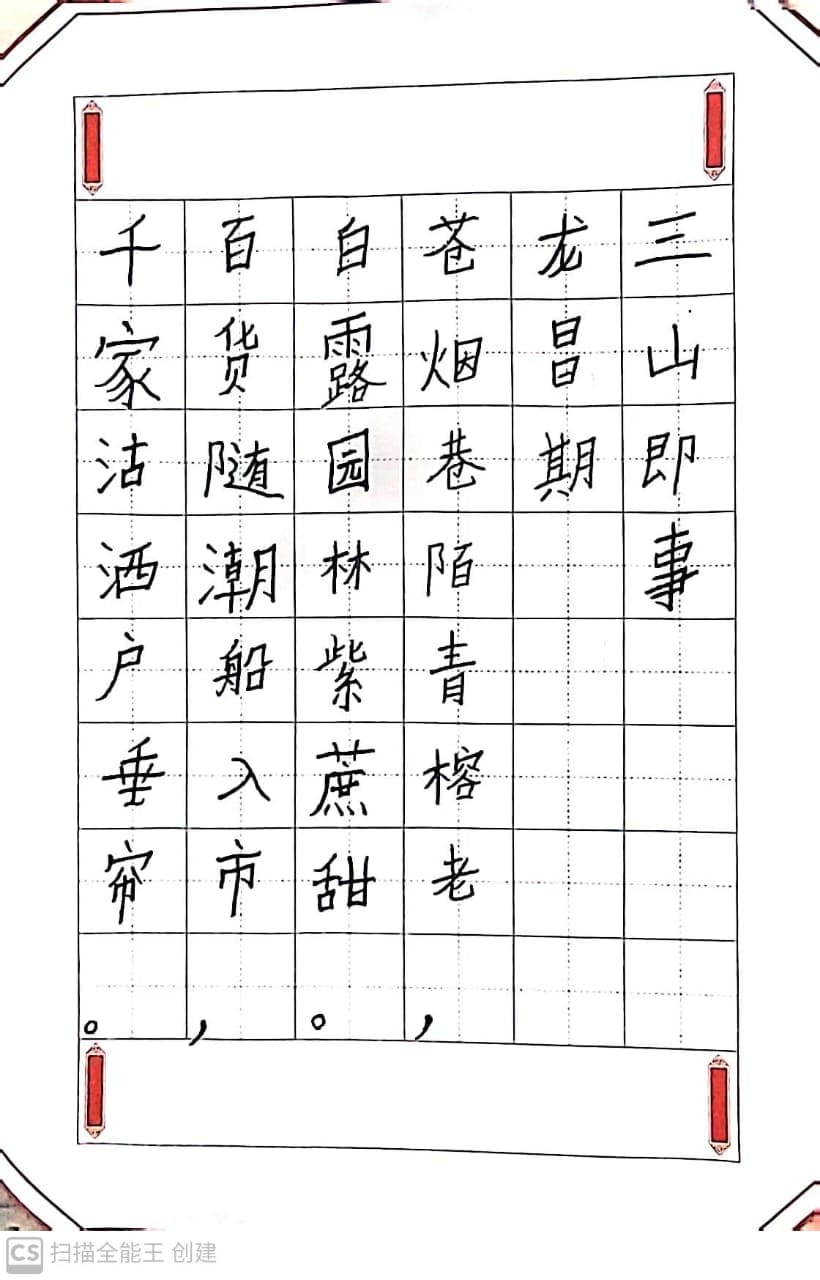 三山即事
龙昌期
苍烟巷陌青榕老，
白露园林紫蔗甜。
百货随潮船入市，
千家沽洒户垂帘。
CS 扫描全能王 创建